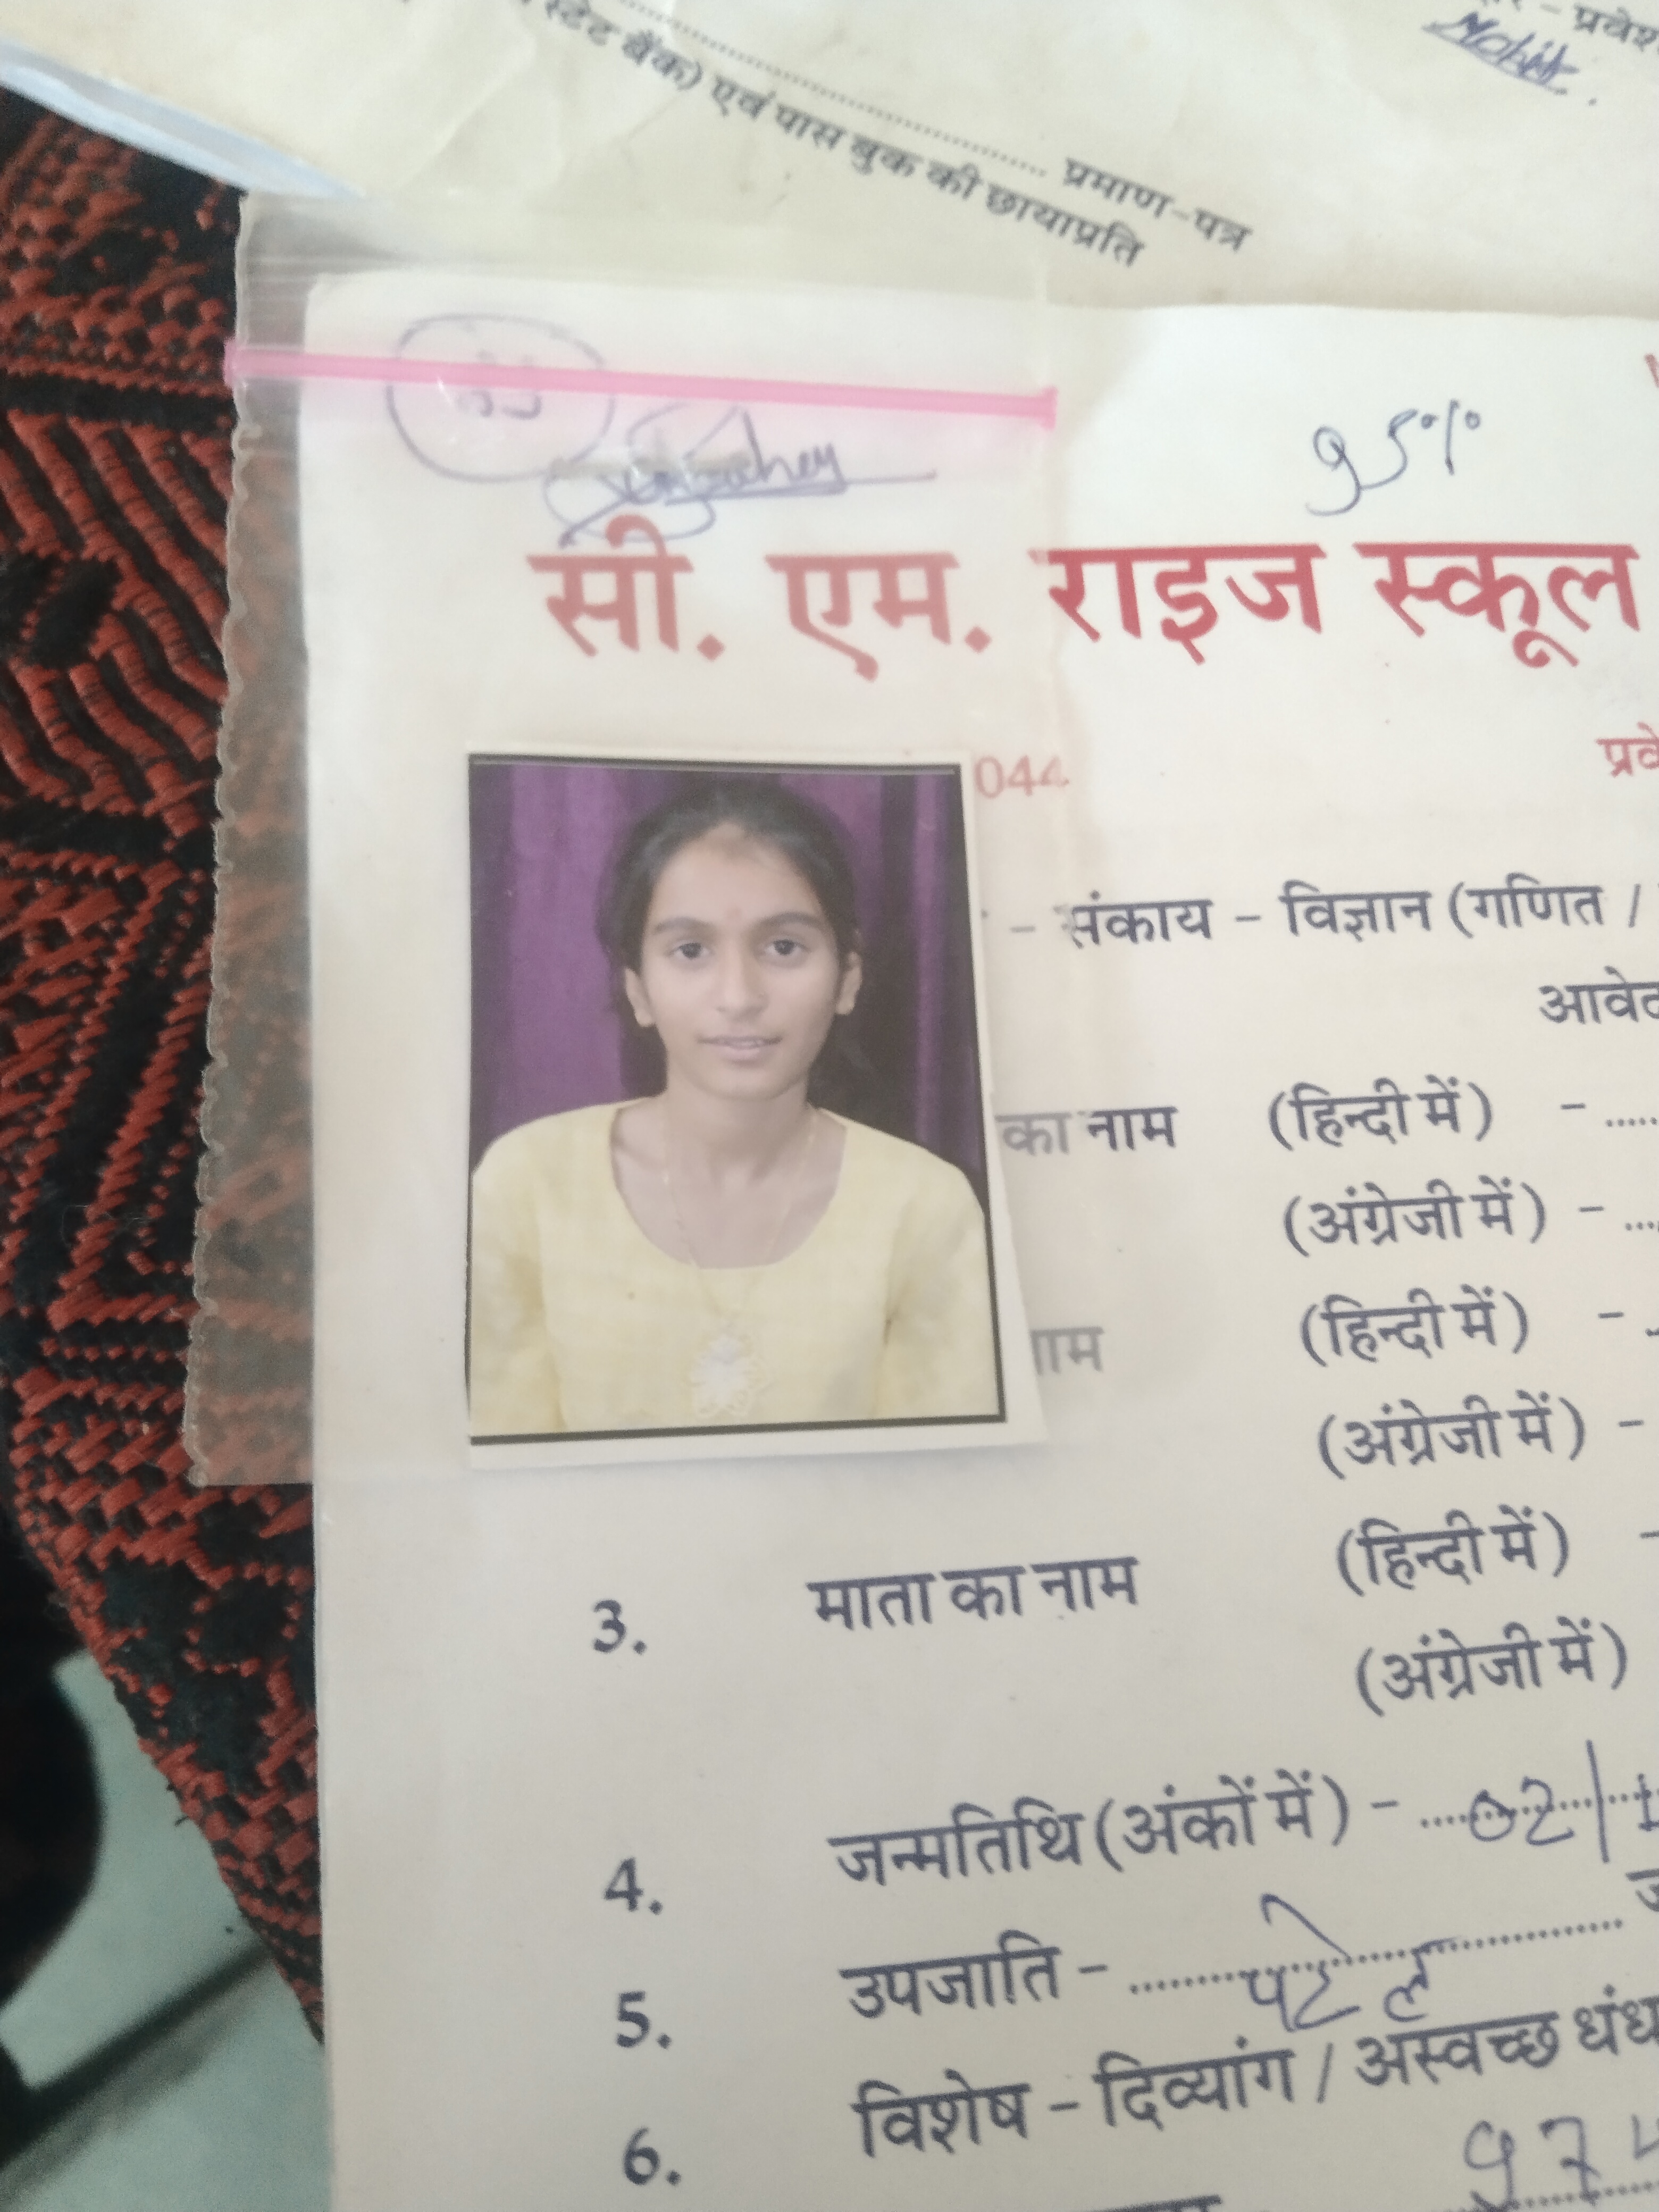 प्रवेश
Mohit.
प्रमाण-पत्र
स्टेट बैंक) एवं पास बुक की छायाप्रति
95%
सी. एम. राइज स्कूल
044
प्रवे
- संकाय - विज्ञान (गणित /
आवेद
का नाम (हिन्दी में) -
(अंग्रेजी में) -
नाम (हिन्दी में) -
(अंग्रेजी में) -
3. माता का नाम (हिन्दी में) -
(अंग्रेजी में)
4. जन्मतिथि (अंकों में) - 02/1
5. उपजाति - पटेल
6. विशेष - दिव्यांग / अस्वच्छ धंध
974